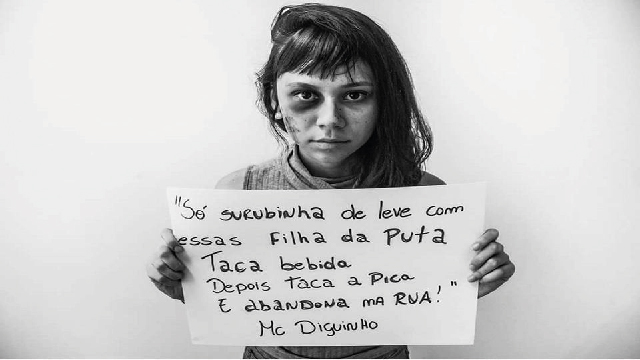 "Só surubinha de leve com
essas Filha da Puta
Taca bebida
Depois taca a Pica
E abandona na RUA!"
Mc Diguinho